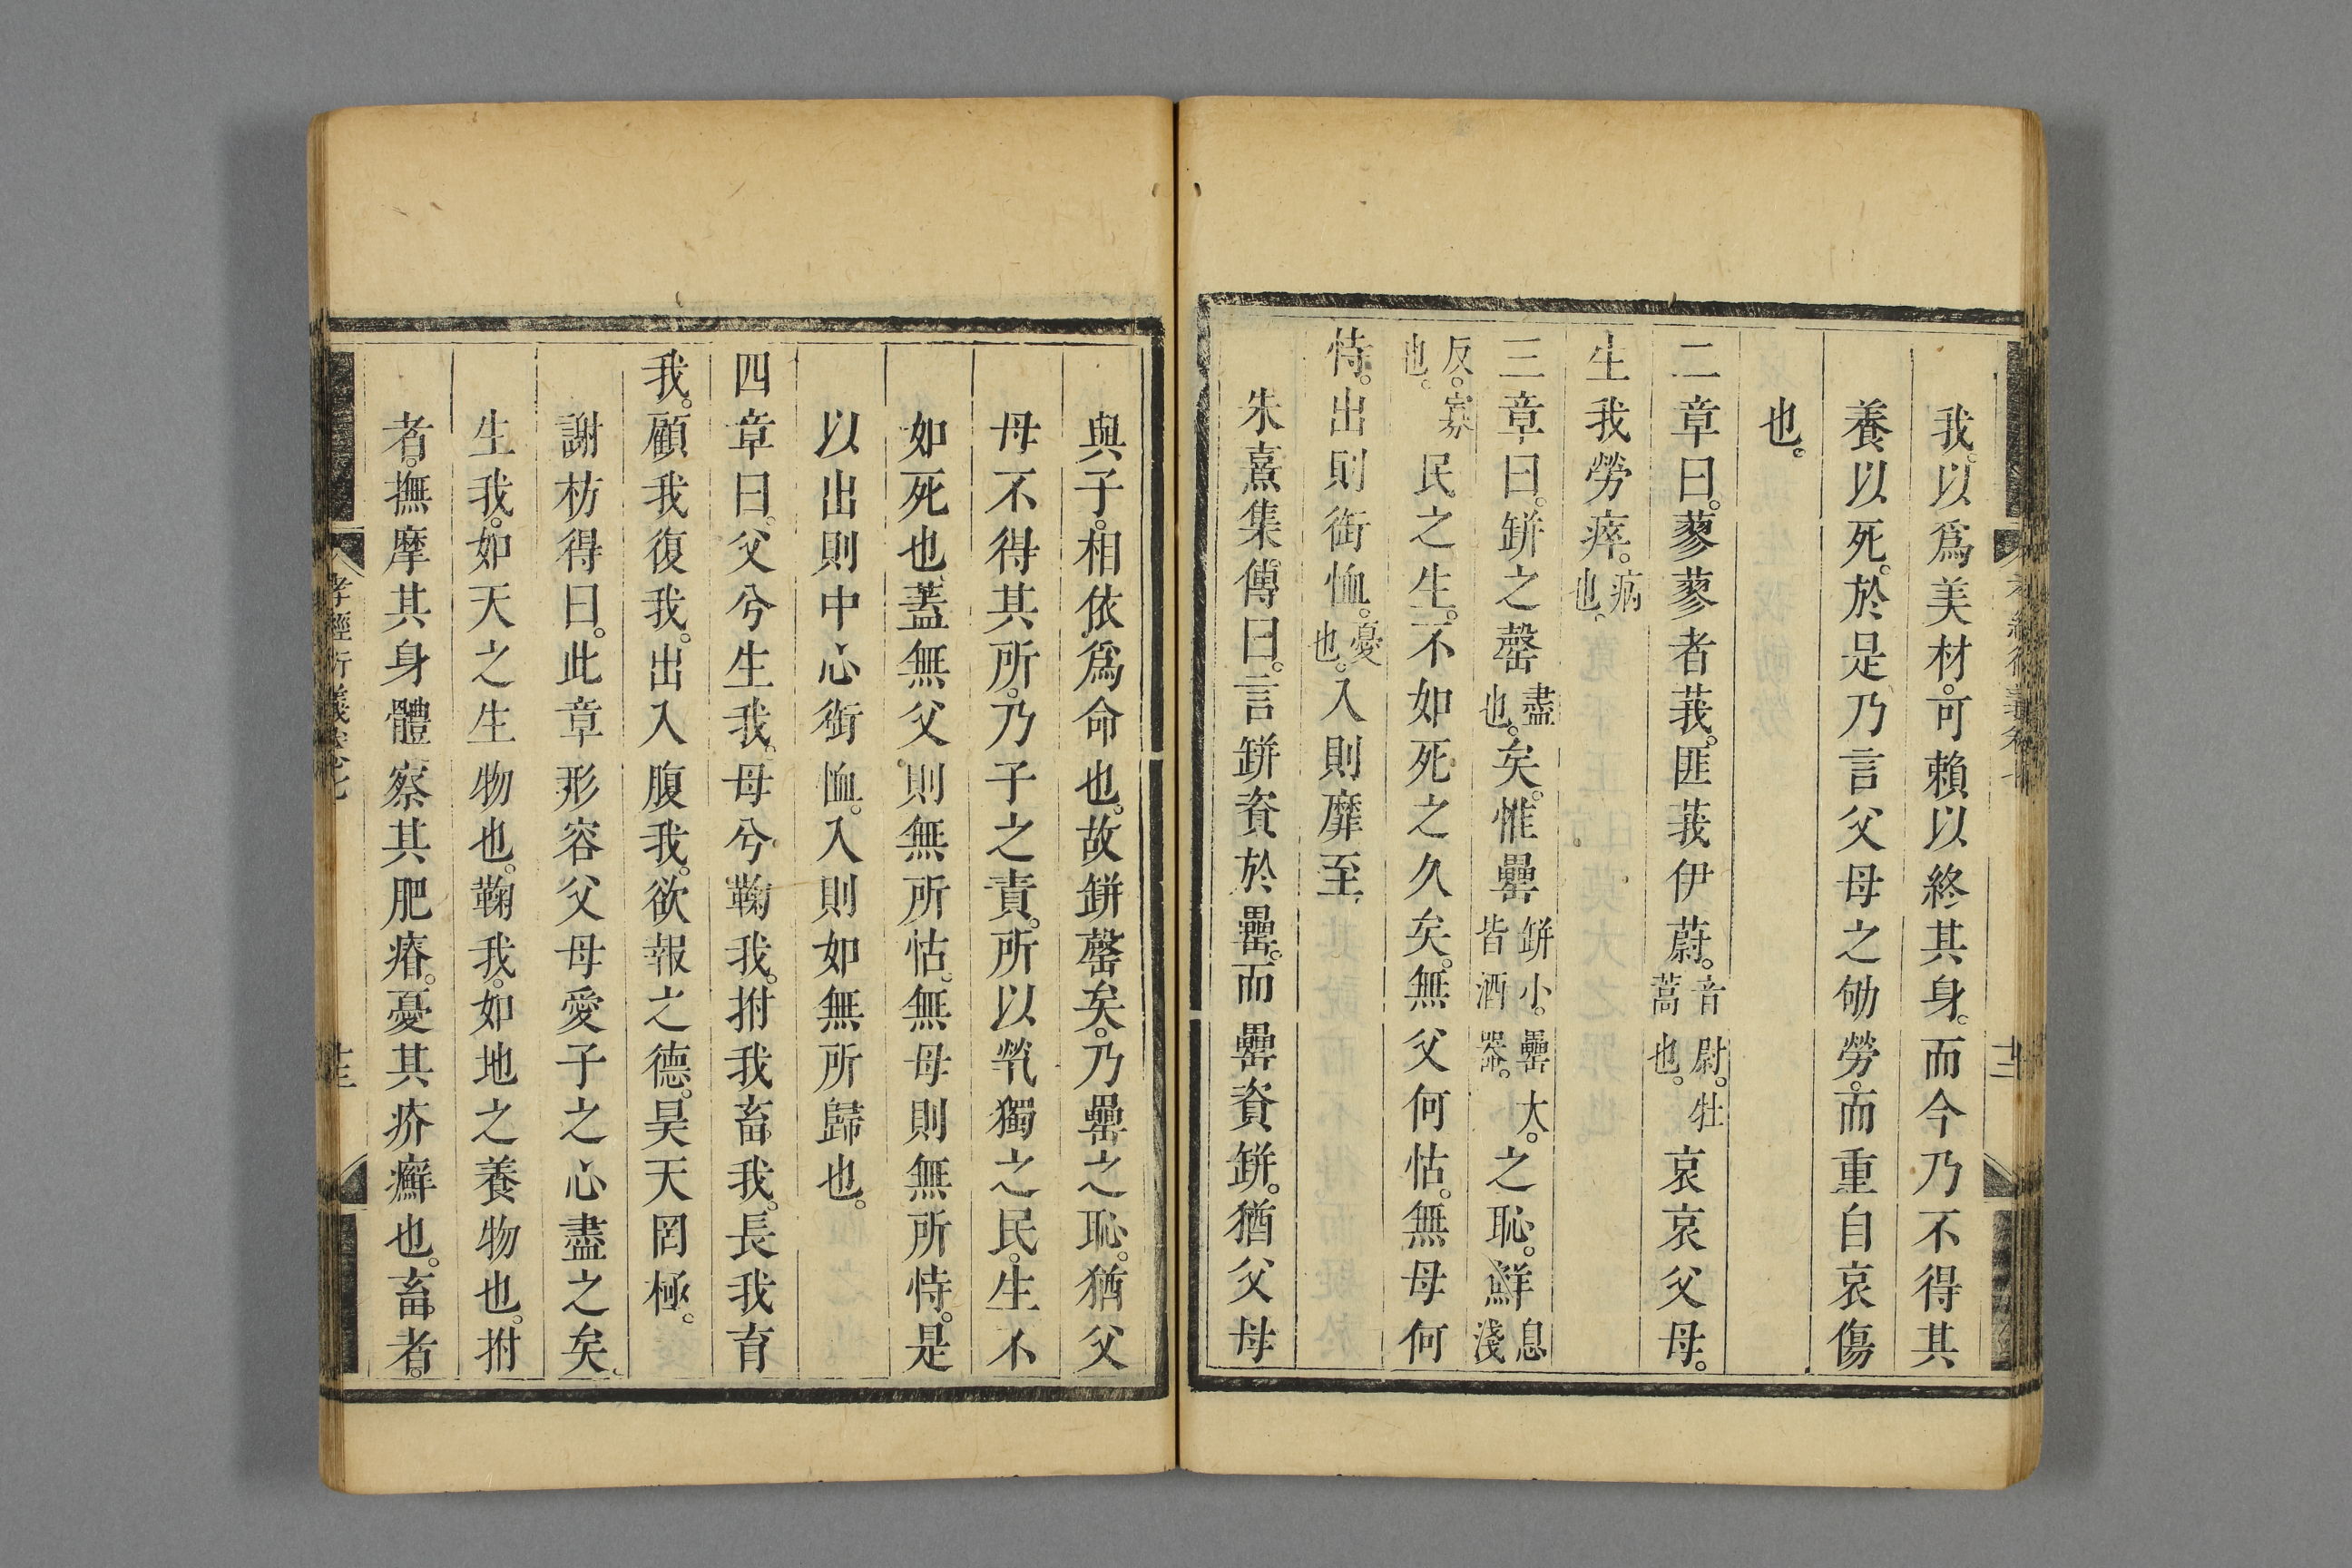 我。以爲美材。可賴以終其身。而今乃不得其
養以死。於是乃言父母之劬勞。而重自哀傷
也。
二章曰。蓼蓼者莪。匪莪伊蔚。音尉。牡蒿也。哀哀父母。
生我勞瘁。病也。
三章曰。缾之罄盡也。矣。惟罍缾小。罍大。皆酒器。之恥。鮮息淺
反。寡也。民之生。不如死之久矣。無父何怙。無母何
恃。出則銜恤。憂也。入則靡至。
朱熹集傳曰。言缾資於罍。而罍資缾。猶父母
與子。相依爲命也。故缾罄矣。乃罍之恥。猶父
母不得其所。乃子之責。所以煢獨之民。生不
如死也。蓋無父。則無所怙。無母則無所恃。是
以出則中心銜恤。入則如無所歸也。
四章曰。父兮生我。母兮鞠我。拊我畜我。長我育
我。顧我復我。出入腹我。欲報之德。昊天罔極。
謝枋得曰。此章形容父母愛子之心盡之矣。
生我。如天之生物也。鞠我。如地之養物也。拊
者。撫摩其身體。察其肥瘠。憂其疥癬也。畜者。
孝經衍義卷七